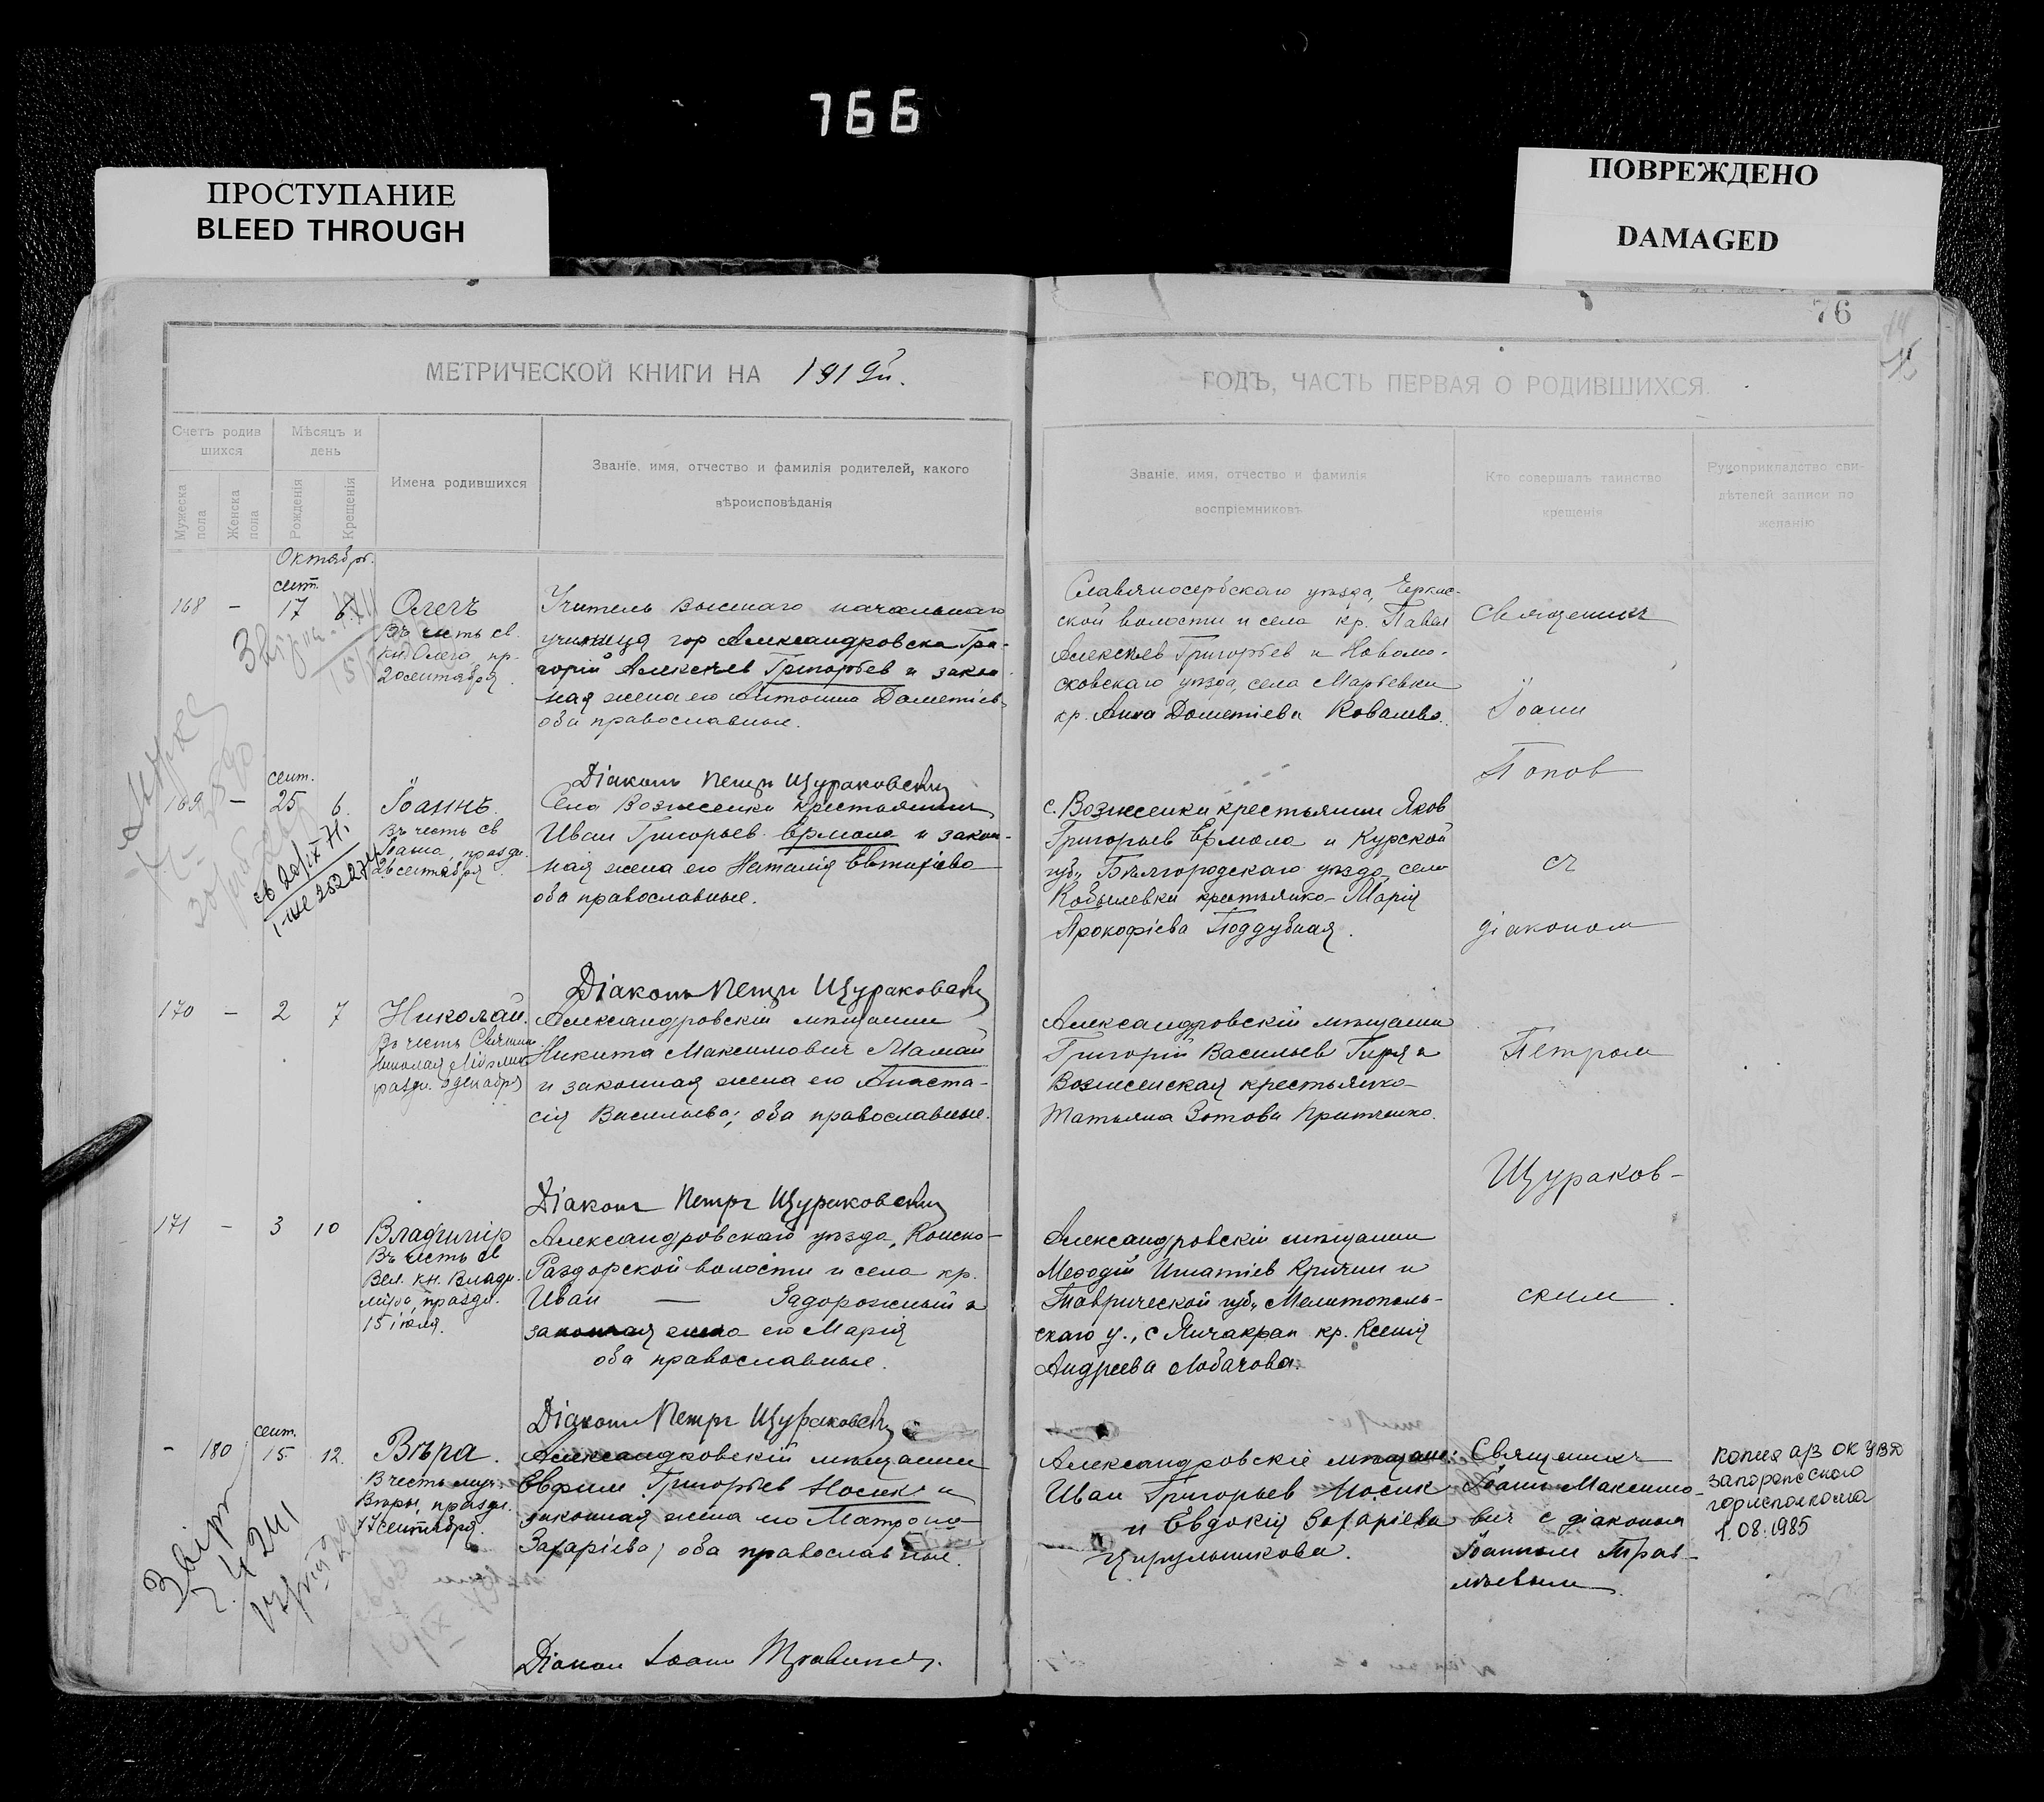 766
ПРОСТУПАНИЕ
BLEED THROUGH
ПОВРЕЖДЕНО
DAMAGED
76
МЕТРИЧЕСКОЙ КНИГИ НА 1919й.
ГОДЪ, ЧАСТЬ ПЕРВАЯ О РОДИВШИХСЯ.
Счетъ родив
шихся
Мужеска пола
Женска пола
Мѣсяцъ и
день
Рожденія
Крещенія
Имена родившихся
Званіе, имя, отчество и фамилія родителей, какого
вѣроисповѣданія
Званіе, имя, отчество и фамилія
воспріемниковъ
Кто совершалъ таинство
крещенія
Рукоприкладство сви-
дѣтелей записи по
желанію
Октябрь.
сент.
168 - 17 6.
Олегъ
Въ честь св.
кн. Олега, пр.
20 сентября.
Учитель высшаго начальнаго
училища гор Александровска Гри-
горій Алексѣев Григорьев и закон
ная жена его Антонина Дометіев
оба православные.
Діаконъ Петръ Щураковскій
Славяносербскаго уѣзда, Черкас-
ской волости и села кр. Павел
Алексѣев Григорьев и Новомо-
сковскаго уѣзда, села Марьевки
кр. Анна Дометіева Ковалева.
Священникъ
Іоанн
Попов
съ
діаконом
Петром
Щураков-
ским.
сент.
169 - 25 6
Іоаннъ.
Въ честь св
Іоанна, праздн.
26 сентября.
Села Вознесенки крестьянин
Иван Григорьев Ермола и закон-
ная жена его Наталія Евтихіева
оба православные.
Діаконъ Петръ Щураковскій
с. Вознесенки крестьянин Яков
Григорьев Ермола и Курской
губ., Бѣлгородскаго уѣзда, села
Кобылевки крестьянка Марія
Прокофіева Поддубная.
170 - 2 7
Николай.
Въ честь Святит.
Николая Мѵрлик.
праздн. 6 декабря
Александровскій мѣщанин
Никита Максимович Мамай
и законная жена его Анаста-
сія Васильева; оба православные.
Діаконъ Петръ Щураковскій
Александровскій мѣщанин
Григорій Васильев Гиря и
Вознесенская крестьянка
Татьяна Зотова Притченко.
171 - 3 10
Владиміръ
Въ честь св
Вел. кн. Влади-
міра, праздн.
15 іюля.
Александровскаго уѣзда, Конско-
Раздорской волости и села кр.
Иван — Задорожный и
законная жена его Марія
оба православные.
Діаконъ Петръ Щураковскій
Александровскій мѣщанин
Меѳодій Игнатіев Кричин и
Таврической губ., Мелитополь-
скаго у., с Янчакрак кр. Ксенія
Андреева Лобачова.
сент.
- 180 15 12.
Вѣра.
В честь муч.
Вѣры, праздн.
17 сентября.
Александровскій мѣщанин
Ефрим Григорьев Носик и
законная жена его Матрона
Захаріева; оба православные.
Діакон Іоанн Травинъ.
Александровскіе мѣщане:
Иван Григорьев Носик
и Евдокія Захаріева
Цирульникова.
Священникъ
Іоанн Максимо-
вич с діаконом
Іоанном Трав-
ьевым
копия аръ ОК УВД
запорожского
горисполкома
1.08.1985